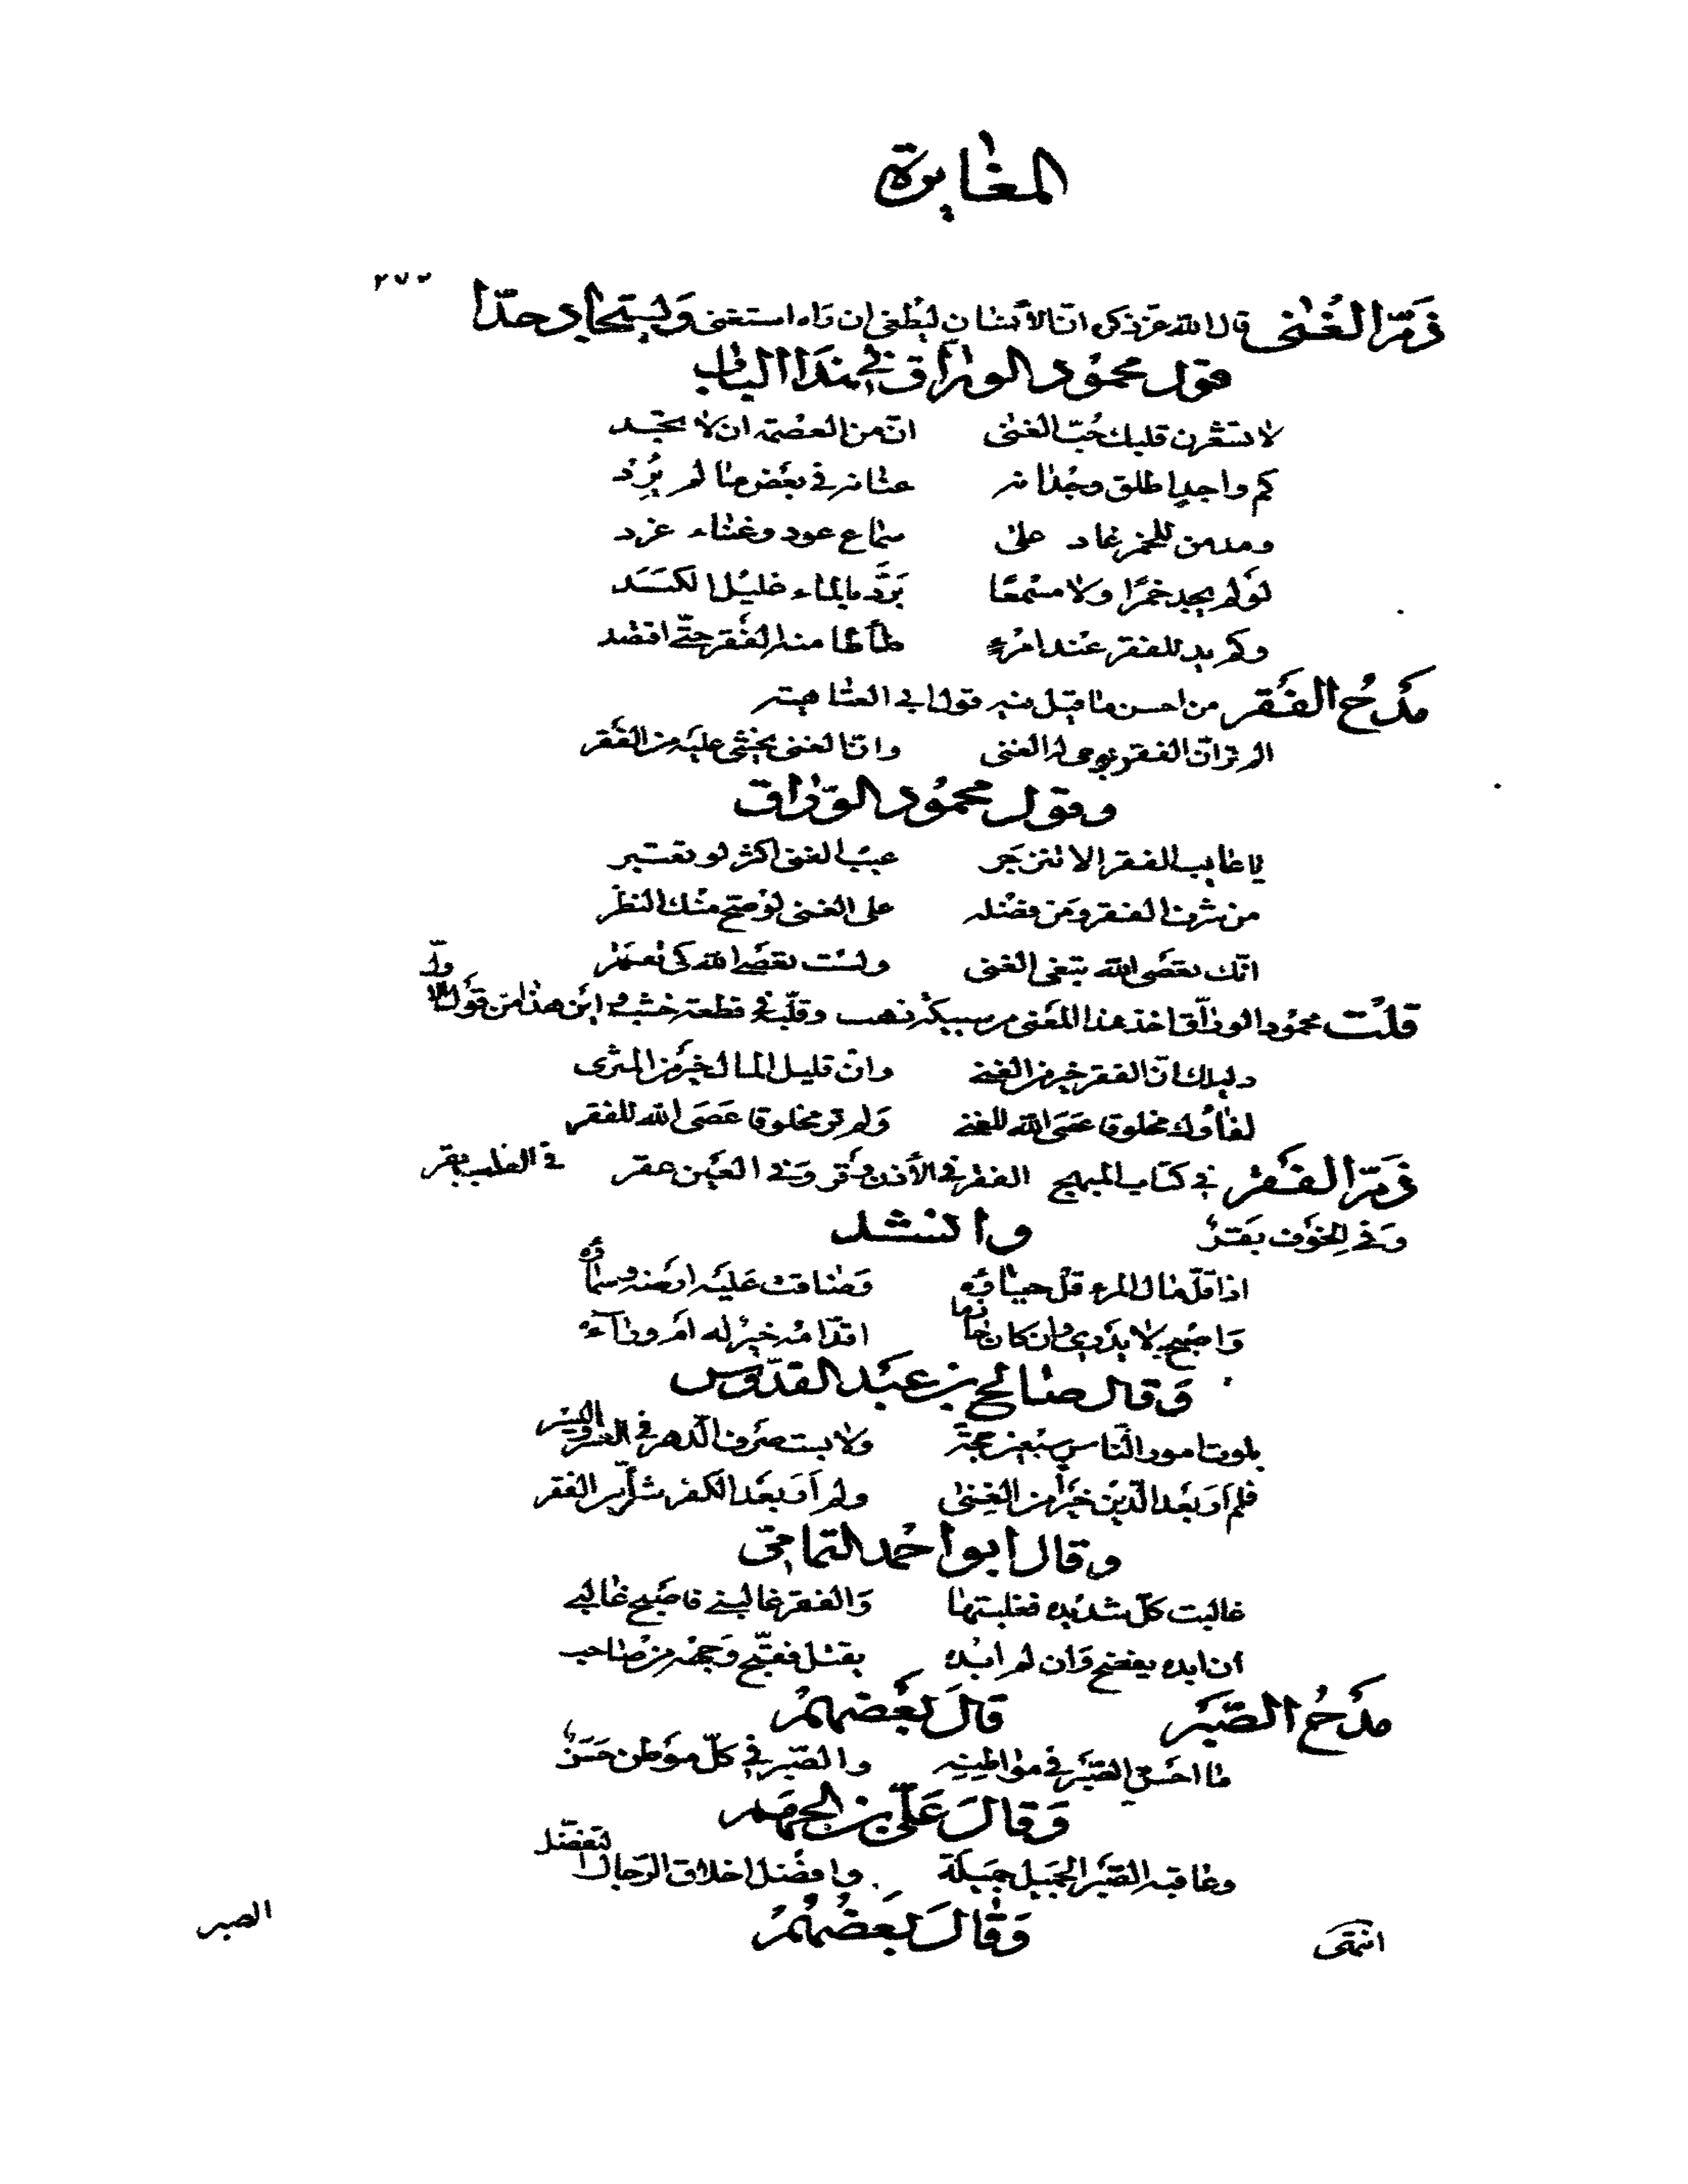 المغايرة
٢٧٢
ذمّ الغنى قال الله عزّ ذكره انّ الأنسان ليطغى ان رآه استغنى ويستجاد جدّا
قول محمود الورّاق في هذا الباب
لا تشعرن قلبك حُبّ الغنى انّ من العصمة ان لا تجد
كم واجدٍ اطلق وجدانه عنانه في بعض ما لم يُرِد
ومدمن للخمر غاد على سماع عود وغناء غرد
لو لم يجد خمرًا ولا مسمعًا بَرَّد بالماء غليل الكبد
وكم يد للفقر عند امرءٍ طأطأ منه الفقر حتّى اقتصد
مَدح الفقر من احسن ما قيل فيه قول ابي العتاهية
الم تر انّ الفقر يرجى له الغنى وانّ الغنى يخشى عليه من الفقر
وقول محمود الورّاق
يا عايب الفقر الا تنزجر عيب الغنى اكثر لو تعتبر
من شرف الفقر ومن فضله على الغنى لو صحّ منك النظر
انّك تعصى الله تبغى الغنى ولست تعصى الله كى تفتقر
قلت محمود الورّاق اخذ هذا المعنى من سبيكة ذهب وقلّبه في قطعة خشب واين هذا من قول الاوّل
دليلك انّ الفقر خير من الغنى وانّ قليل المال خير من المثرى
لقاؤك مخلوقا عَصَى الله للغنى ولم تر مخلوقا عَصَى الله للفقر
ذمّ الفقر في كتاب المبهج الفقر في الأذن وقر وفى العين عقر في القلب نقر
وَفي الجَوف بَقر وانشد
اذا قلّ مال المرء قلّ حياؤه وضاقت عليه ارضه وسماؤه
وَاصبح لا يدرى وان كان حازما اقدّامه خير له ام ورآءه
وَقال صالح بن عبد القدّوس
بلوت امور النّاس سبعين حجّة ولابست صرف الدّهر في العسر واليسر
فلم اَرَ بعد الدّين خيرًا من الغِنى ولم اَرَ بعد الكفر شرّا من الفقر
وقال ابو احمد التمامى
غالبت كلّ شديده فغلبتها وَالفقر غالبنى فاصبح غالبى
ان ابده يفضح وَان لم ابده يقتل فقبّح وجهه من صاحب
مَدحُ الصّبر قالَ بَعضهم
ما احسن الصّبر في مواطنِهِ والصّبر في كلّ موطن حَسَن
وَقالَ عَلّى بن الجهم
وعاقبة الصّبر الجميل جميلة وافضل اخلاق الرّجال التفضّل
وَقالَ بَعضُهُم
انتهى
الصبر